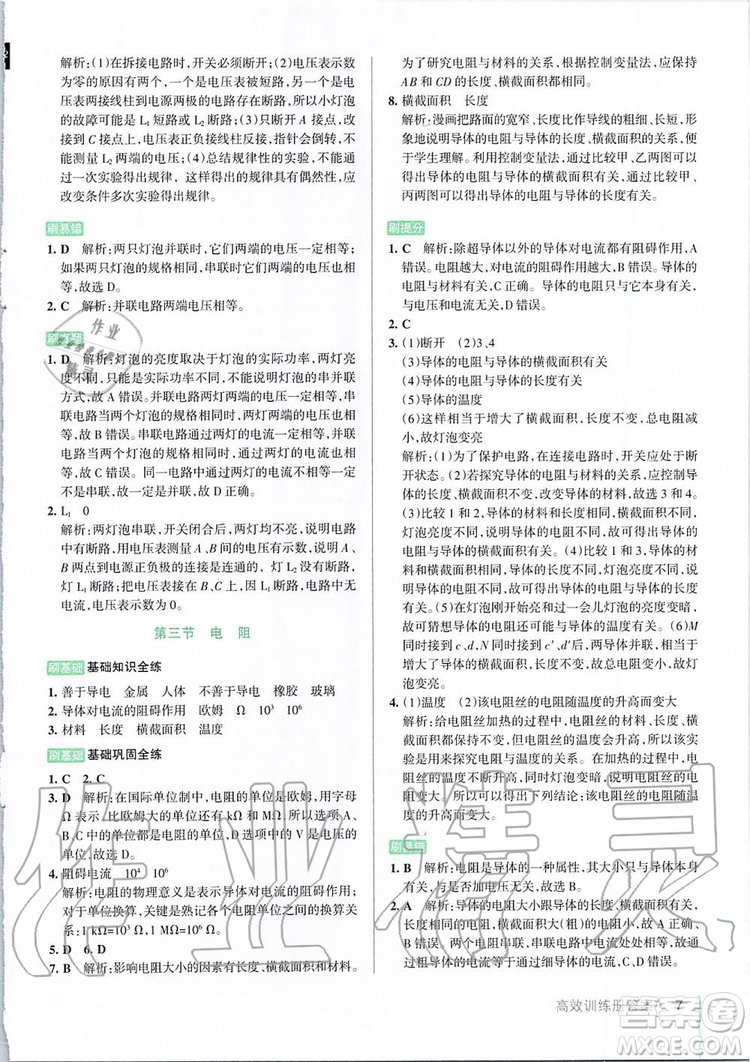 解析:(1)在拆接电路时,开关必须断开;(2)电压表示数
为零的原因有两个,一个是电压表被短路,另一个是电
压表两接线柱到电源两极的电路存在断路,所以小灯泡
的故障可能是 L₁ 短路或 L₂ 断路;(3)只断开 A 接点,改
接到 C 接点上,电压表正负接线柱反接,指针会倒转,不
能测出 L₂ 两端的电压;(4)总结规律性的实验,不能通
过一次实验得出规律,这样得出的规律具有偶然性,应
改变条件多次实验得出规律。
刷易错
1. D 解析:两只灯泡并联时,它们两端的电压一定相等;
如果两只灯泡的规格相同,串联时它们两端的电压一定
相等,故选 D。
2. C 解析:并联电路两端电压相等。
1. D 解析:灯泡的亮度取决于灯泡的实际功率,两灯亮
度不同,只能是灯泡的实际功率不同,不能区分串并联
方式,故 A 错误。并联电路两灯两端的电压一定相等,串
联电路当两个灯泡的规格相同时,两灯泡的电压也相
等,故 B 错误。串联电路通过两灯的电流一定相等;并
联电路当两个灯泡的规格相同时,通过两灯泡的电流也
相等,故 C 错误。同一电路中通过两灯的电流不同,一定
不是串联,故一定是并联,故 D 正确。
2. L₁ 0
解析:两灯泡串联,开关闭合后,两灯均不亮,说明电路
中有断路,用电压表测量 A、B 两点间的电压有示数,说明
A、B 两点到电源正负极的连接是连通的,灯 L₂ 无断路,
原因是 L₁ 断路;把电压表改接在 B、C 间,因 L₁ 断路,电路中无
电流,电压表示数为 0。
第三节 电 阻
刷基础 基础知识全练
1. 善于导电 金属 人体 不善于导电 橡胶 玻璃
2. 导体对电流的阻碍作用 欧姆 Ω 10³ 10⁶
3. 材料 长度 横截面积 温度
刷基础 基础巩固全练
1. C 2. C
3. D 解析:在国际单位制中,电阻的单位是欧姆,用字母
Ω 表示,比欧姆大的单位还有 kΩ 和 MΩ,选项中 A、B、
C 都是电阻的单位,D 选项中的 V 是电压的单位。
4. 阻碍电流 10⁶
解析:电阻的物理意义是表示导体对电流的阻碍作用;
对于单位换算,关键是熟记各个单位之间的换算关系:
1 kΩ=10³ Ω,1 MΩ=10⁶ Ω。
5. D 6. D
7. B 解析:影响电阻大小的因素有长度、横截面积和材料。
为了研究电阻与材料的关系,根据控制变量法,应保持
AB 和 CD 的长度、横截面积都相同。
8. 横截面积 长度
解析:漫画把路面的宽窄、长度比作导线的粗细、长短,形
象地说明导体的电阻与导体的长度、横截面积的关系,便
于学生理解。利用控制变量法,通过比较甲、乙两图可以
说明导体的电阻大小与导体的横截面积有关;比较甲、
丙两图可以说明导体的电阻大小与导体的长度有关。
刷提分
1. C 解析:除超导体以外的导体对电流都有阻碍作用,A
错误。电阻越大,对电流的阻碍作用越大,B 错误。导体的
电阻是导体本身的一种性质,C 正确。导体的电阻只与导体自身有关,
与电压和电流无关,D 错误。
2. C
3. (1)断开 (2)3、4
(3)导体的电阻与导体的横截面积有关
(4)导体的电阻与导体的长度有关
(5)导体的温度
(6)这样相当于增大了横截面积,长度不变,总电阻减
小,故灯泡变亮
解析:(1)为了保护电路,在连接电路时,开关应处于断
开状态。(2)若探究导体的电阻与材料的关系,应控制导
体的长度、横截面积不变,改变导体的材料,故选 3 和 4。
(3)比较 2、3 可知,导体的材料、长度相同,横截面积不同,
灯泡亮度不同,故可以得出的结论是:导体的材料、长度相同时,导体
的电阻与导体的横截面积有关。(4)比较 1、3 可知,导
体的材料、横截面积相同,长度不同,灯泡亮度不同,说
明电阻不同,故可以得出的结论是:导体的电阻与导体的长度有
关。(5)灯泡刚开始发光和过一会儿灯泡的亮度变暗,故可以
猜想导体的电阻可能还与导体的温度有关。(6)M
同时接触 c、d 和 c′、d′时,相当于导体的长度不变,横截面
积增大了,导体的横截面积越大,电阻越小,故灯
泡变亮。
4. (1)温度 (2)该电阻丝的电阻随温度的升高而变大
解析:给电阻丝加热的过程中,电阻丝的材料、长度、横
截面积都保持不变,但电阻丝的温度发生了变化,所以
是用来探究电阻与温度的关系。在加热的过程中,电流
表示数变小,所以可以得出如下结论:该电阻丝的电阻
随温度的升高而变大。
1. B 解析:电阻是导体的一种属性,其大小与电流、电压
都没有关系,故选 B。
2. A 解析:电阻的大小跟导体的材料、长度、横截面积有关,
长度相同的电阻丝,横截面积大(粗)的电阻小,故 A 正确,
B 错误。两个电阻丝串联,串联电路中电流处处相等,故
C、D 错误。
高效训练册答案 7